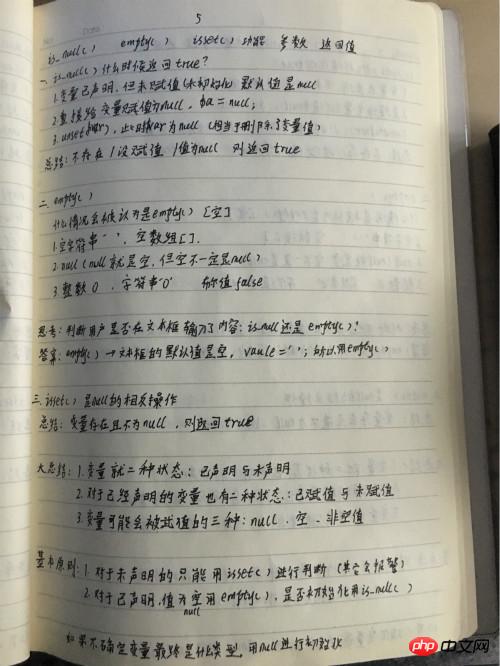 5
is_null() empty() isset() 功能 参数 返回值
一、is_null() 什么时候返回true?
1.变量已声明,但未赋值(未初始化) 默认值是null
2.直接给变量赋值为null, $a = null;
3.unset($var), 此时$var为null (相当于删除了变量值)
总结:不存在/没赋值/值为null 则返回true
二、empty()
什么情况会被认为是empty() [空]
1.空字符串'',空数组[].
2.null (null就是空,但空不一定是null)
3.整数0、字符串'0' 布尔值false
思考:判断用户是否在文本框输入了内容:is_null还是empty()?
答案:empty() → 文本框的默认值是空,vaule='';所以用empty()
三、isset() 是null的相反操作
总结:变量存在且不为null,则返回true
大总结:1.变量就二种状态:已声明与未声明
2.对于已经声明的变量也有二种状态:已赋值与未赋值
3.变量可能会被赋值的三种:null、空、非空值
基本原则:1.对于未声明的只能用isset()进行判断(其它会报警)
2.对于已声明,值为空用empty(),是否初始化用is_null()
null
如果不确定变量最终是什么类型,用null进行初始化
php中文网